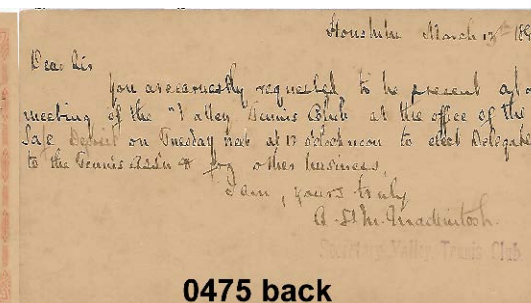 Honolulu March 13th 189
Dear Sir
You are earnestly requested to be present at a
meeting of the "Valley Tennis Club" at the office of the
Safe Deposit on Tuesday next at 12 o'clock noon to elect Delegate
to the Tennis Ass'n & for other business.
I am, yours truly
A. St. M. Mackintosh.
Secretary Valley Tennis Club
0475 back